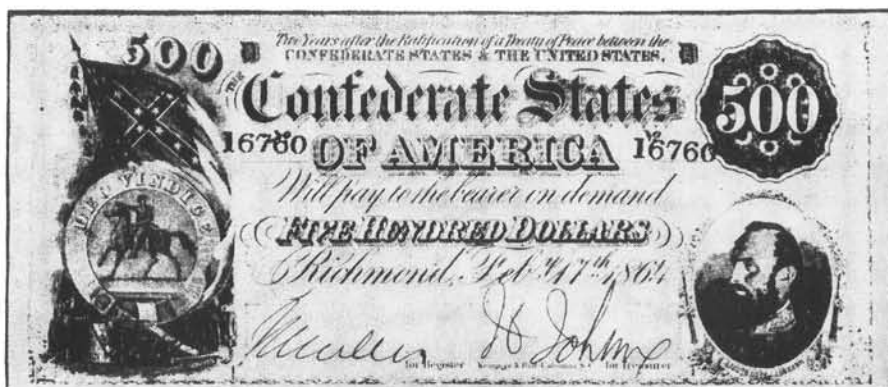 500
Two Years after the Ratification of a Treaty of Peace between the
CONFEDERATE STATES & THE UNITED STATES,
THE
Confederate States
500
16760 No 16760
OF AMERICA
Will pay to the bearer on demand
DEO VINDICE
FIVE HUNDRED DOLLARS
Richmond, Feby. 17th, 1864
for Register
for Treasurer